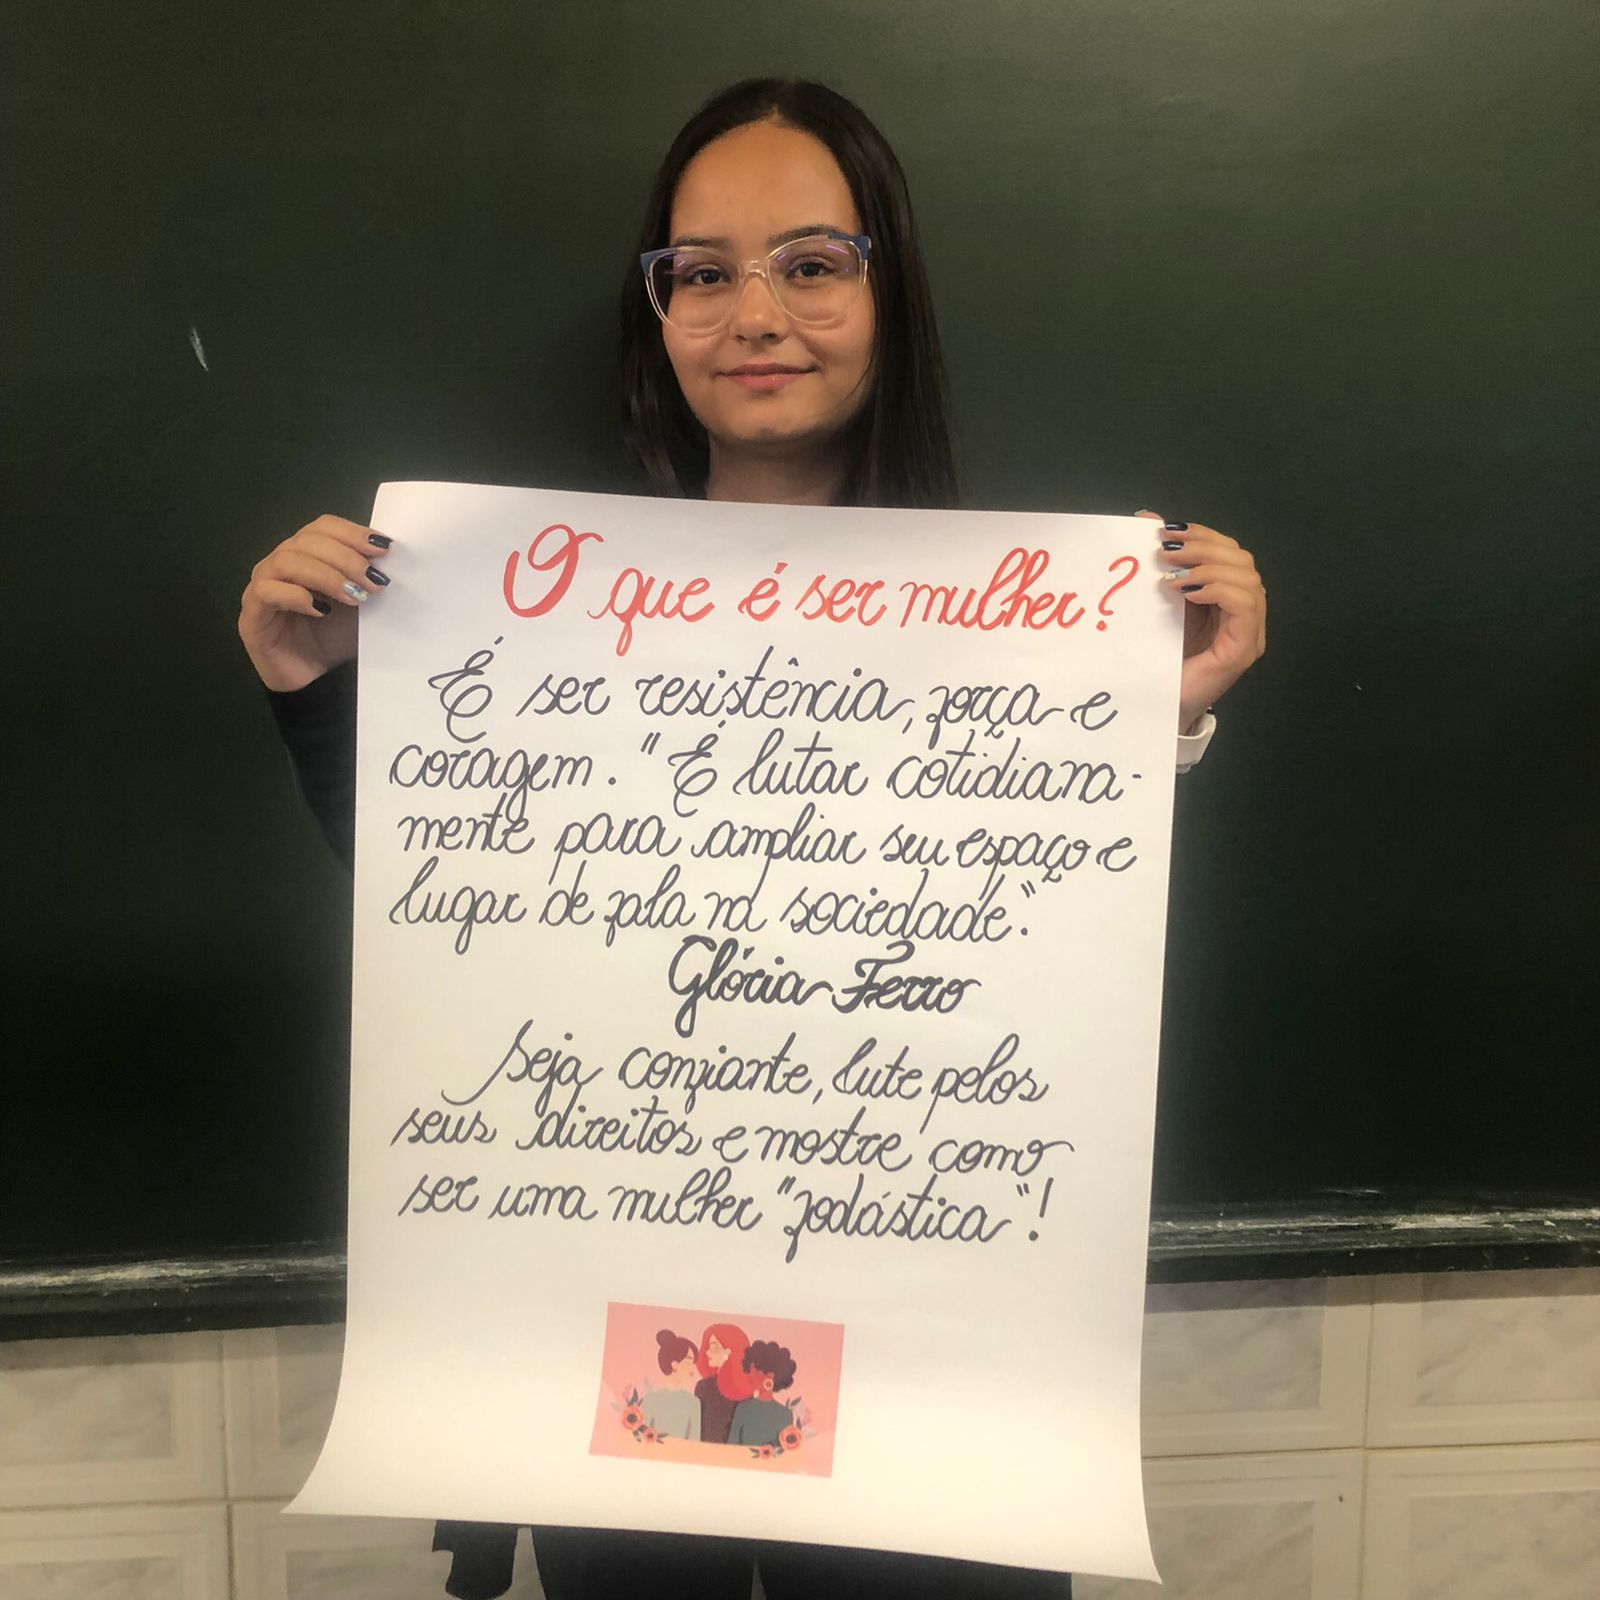 O que é ser mulher?
É ser resistência, força e
coragem. "É lutar cotidiana-
mente para ampliar seu espaço e
lugar de fala na sociedade."
Glória Ferro
Seja confiante, lute pelos
seus direitos e mostre como
ser uma mulher "fodástica"!